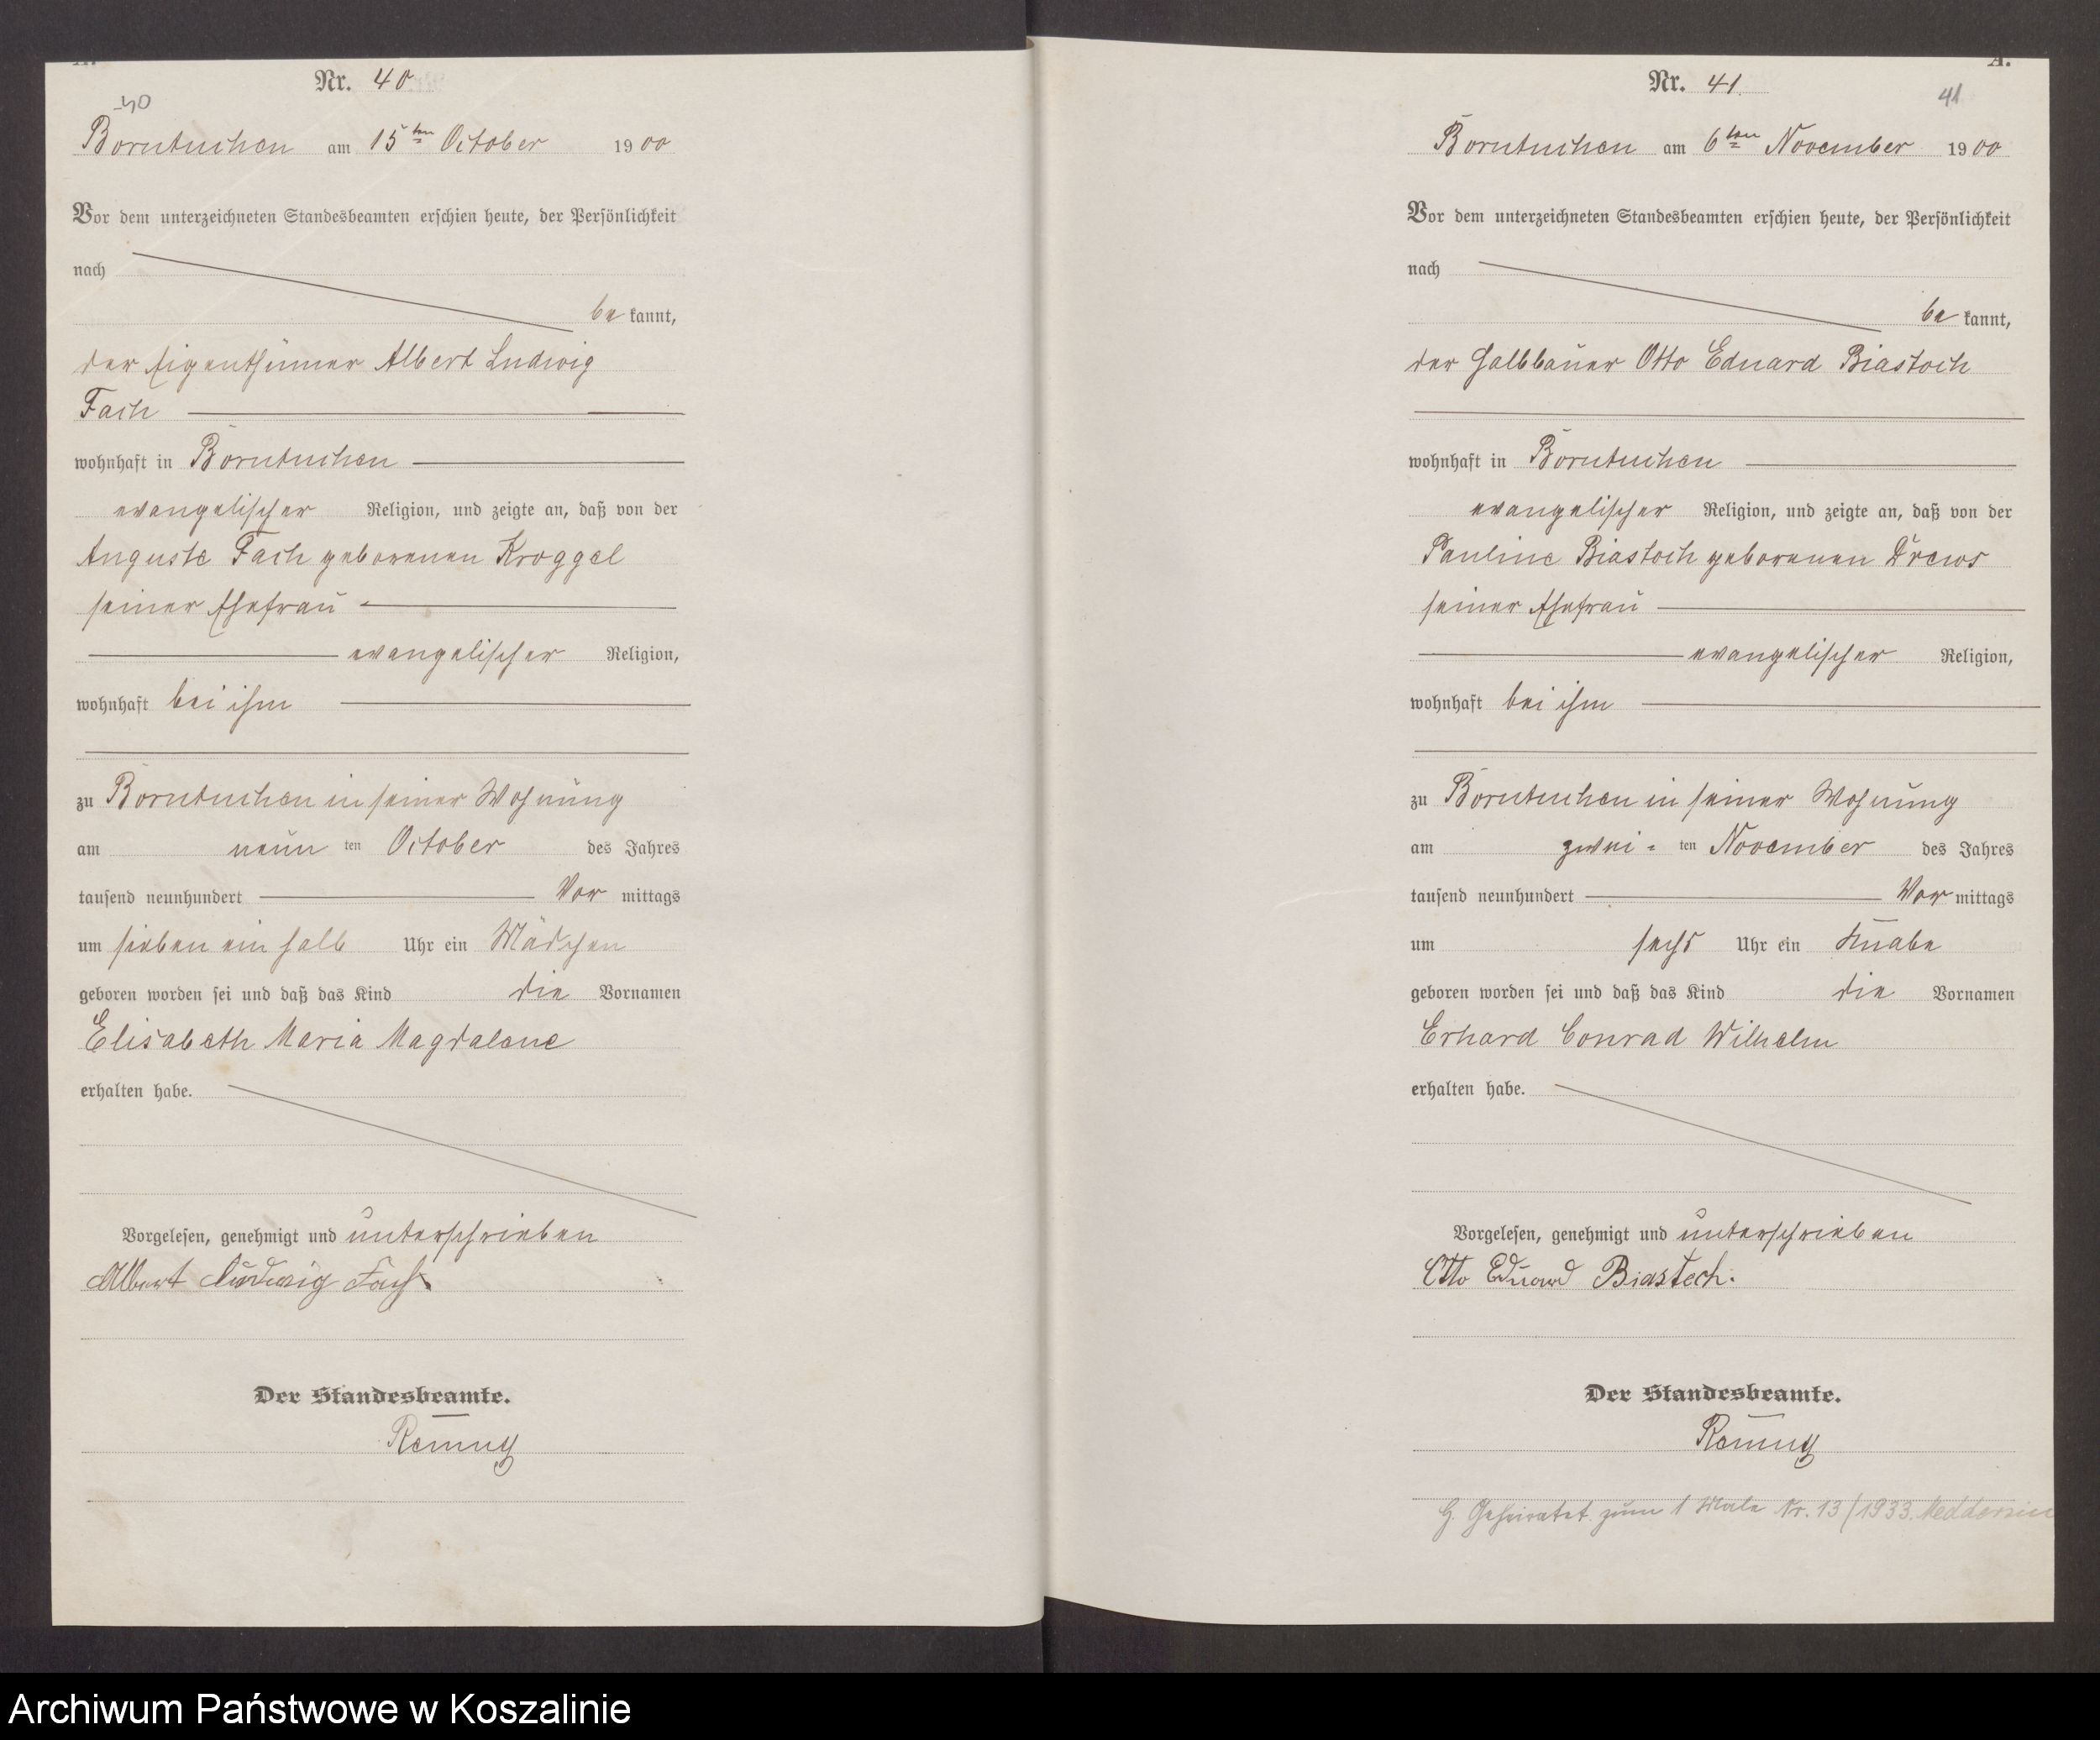 Nr. 40
40
Borntuchen am 15ten October 1900
Vor dem unterzeichneten Standesbeamten erschien heute, der Persönlichkeit
nach
be kannt,
der Eigenthümer Albert Ludwig
Fach
wohnhaft in Borntuchen
evangelischer Religion, und zeigte an, daß von der
Auguste Fach geborenen Kroggel
seiner Ehefrau
evangelischer Religion,
wohnhaft bei ihm
zu Borntuchen in seiner Wohnung
am neun ten October des Jahres
tausend neunhundert Vor mittags
um sieben ein halb Uhr ein Mädchen
geboren worden sei und daß das Kind die Vornamen
Elisabeth Maria Magdalene
erhalten habe.
Vorgelesen, genehmigt und unterschrieben
Albert Ludwig Fach
Der Standesbeamte.
A.
Nr. 41.
41
Borntuchen am 6ten November 1900
Vor dem unterzeichneten Standesbeamten erschien heute, der Persönlichkeit
nach
be kannt,
der Halbbauer Otto Eduard Biastoch
wohnhaft in Borntuchen
evangelischer Religion, und zeigte an, daß von der
Pauline Biastoch geborenen Drews
seiner Ehefrau
evangelischer Religion,
wohnhaft bei ihm
zu Borntuchen in seiner Wohnung
am zwei = ten November des Jahres
tausend neunhundert Vor mittags
um sechs Uhr ein Knabe
geboren worden sei und daß das Kind die Vornamen
Erhard Conrad Wilhelm
erhalten habe.
Vorgelesen, genehmigt und unterschrieben
Otto Eduard Biastoch.
Der Standesbeamte.
Geheiratet zum 1 Male Nr. 13/1933.
Archiwum Państwowe w Koszalinie